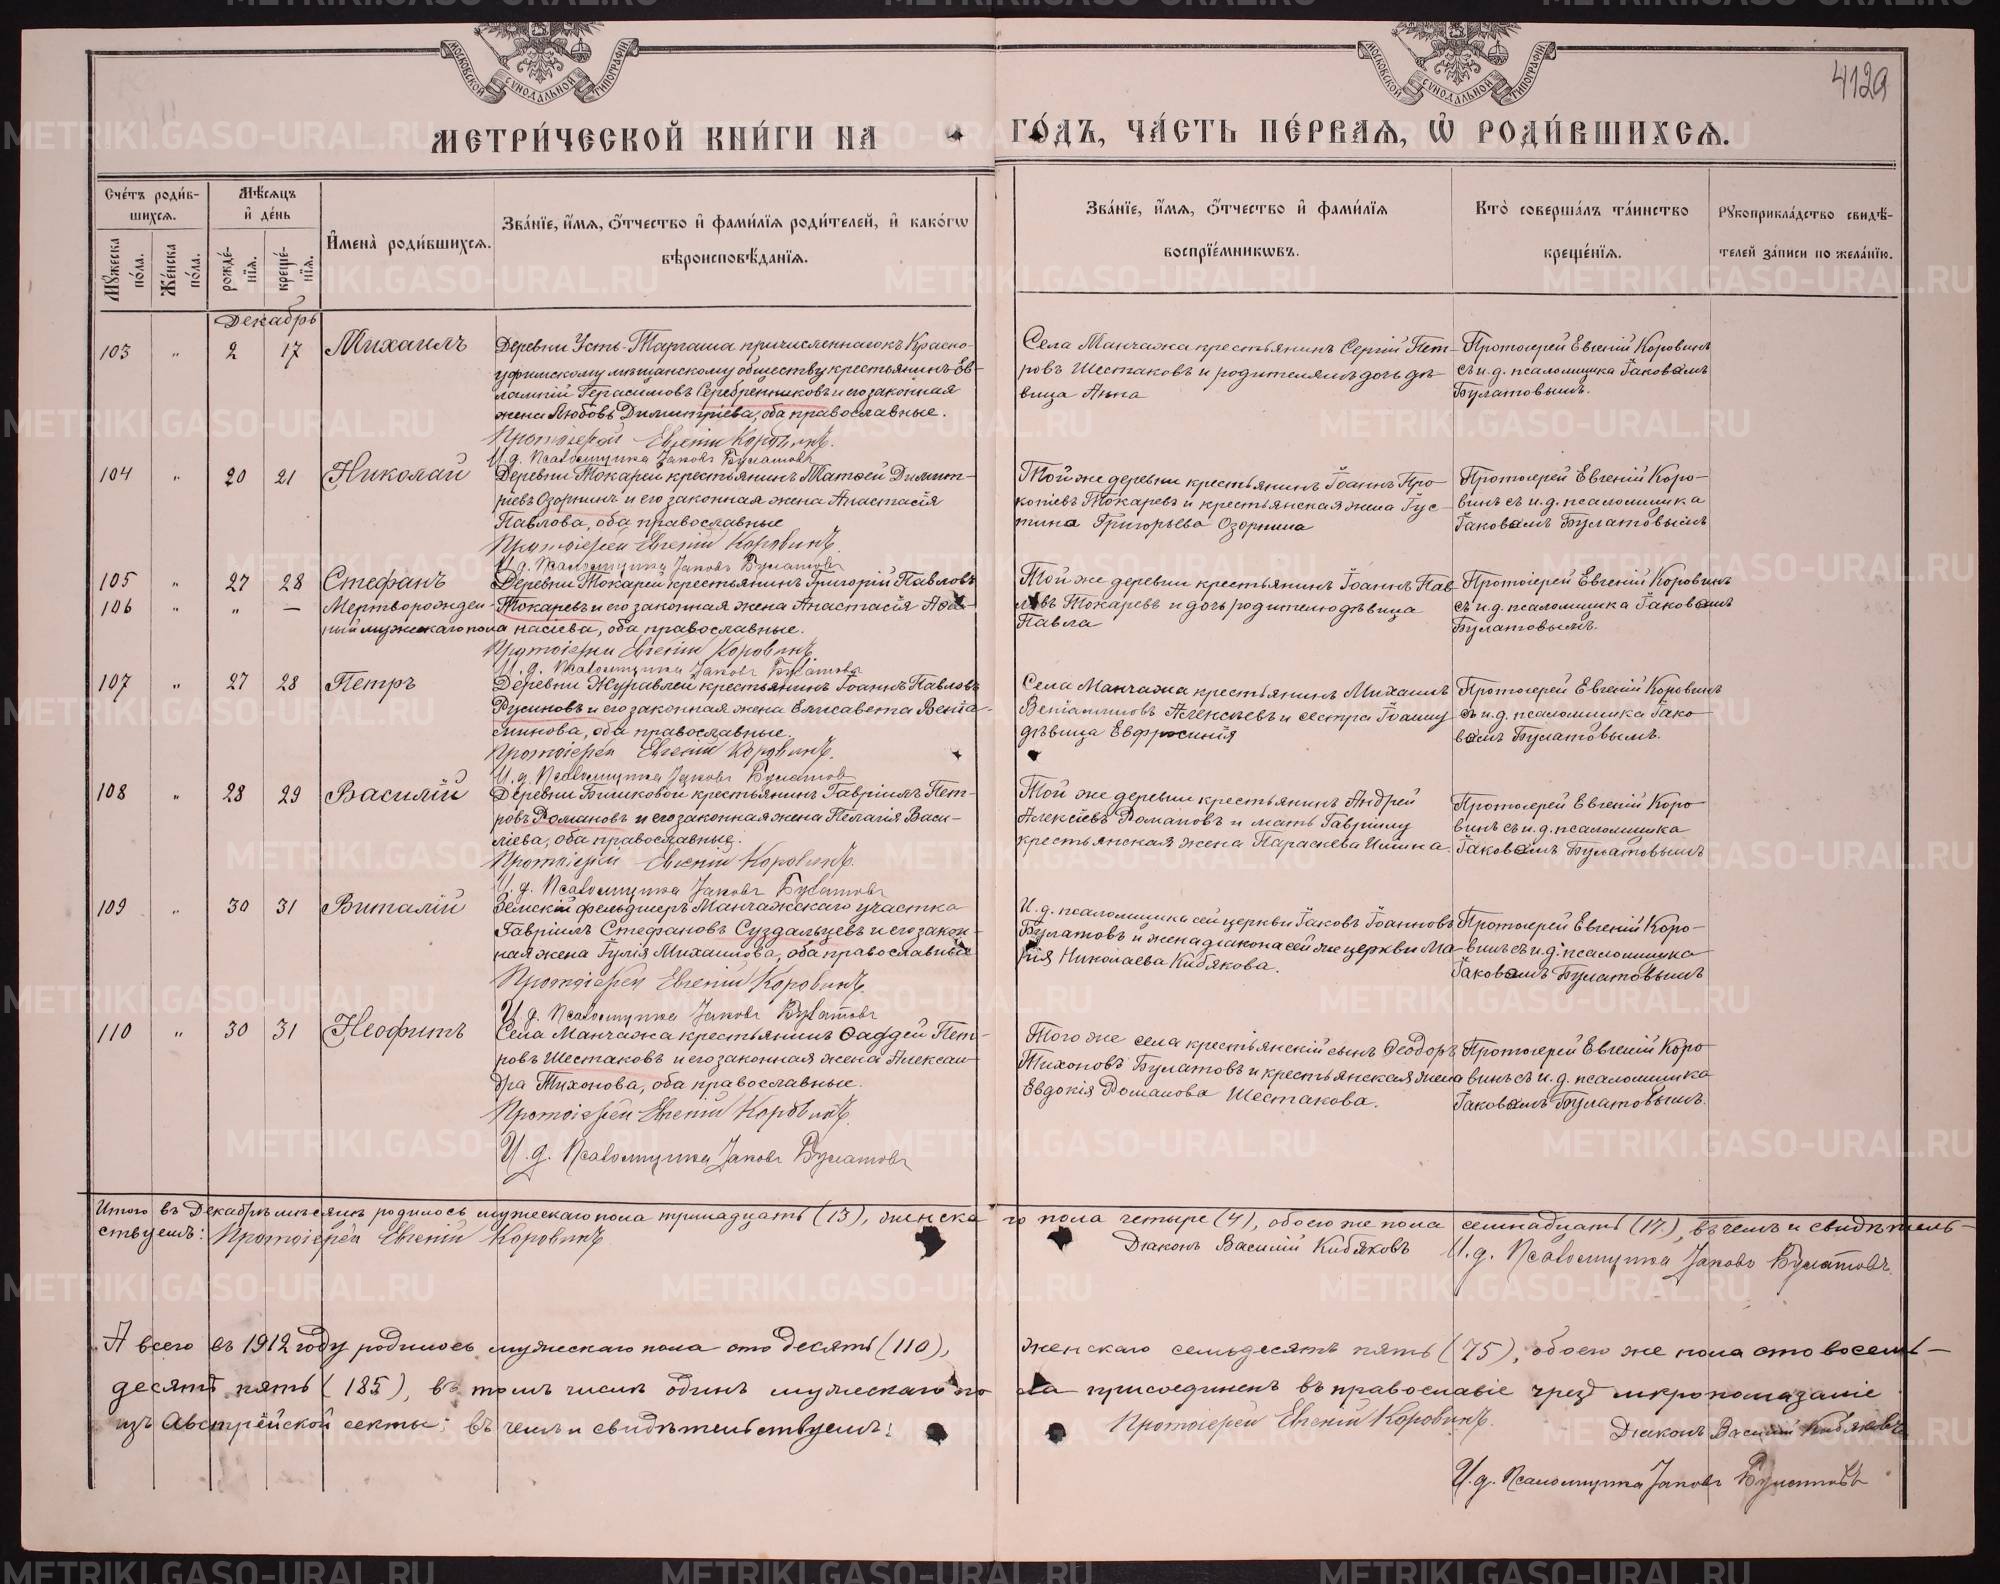 412а
МОСКОВСКОЙ СУНОДАЛЬНОЙ ТИПОГРАФІИ
МОСКОВСКОЙ СУНОДАЛЬНОЙ ТИПОГРАФІИ
МЕТРИ́ЧЕСКОЙ КНИ́ГИ НА ГО́ДЪ, ЧА́СТЬ ПЕ́РВАЯ, Ѡ РОДИ́ВШИХСЯ.
Сче́тъ роди́в-
шихсѧ.
Мꙋ́жеска по́ла.
Же́нска по́ла.
Мѣ́сѧцъ
и҆ де́нь
рожде́-
нїѧ.
креще́-
нїѧ.
И҆мена̀ роди́вшихсѧ.
Зва́нїе, и҆́мѧ, ѻ҆́тчество и҆ фами́лїѧ роди́телей, и҆ како́гѡ
вѣроисповѣ́данїѧ.
Зва́нїе, и҆́мѧ, ѻ҆́тчество и҆ фами́лїѧ
воспрїе́мникѡвъ.
Кто̀ соверша́лъ та́инство
креще́нїѧ.
Рꙋкоприкла́дство свидѣ́-
телей за́писи по жела́нїю.
Декабрь
103 " 2 17 Михаилъ
Деревни Усть-Торгаша причисленнаго къ Красно-
уфимскому мѣщанскому обществу крестьянинъ Ев-
лампій Герасимовъ Серебренниковъ и его законная
жена Любовь Димитріева, оба православные.
Протоіерей Евгеній Коровинъ.
И. д. Псаломщика Іаковъ Булатовъ
Села Манчажа крестьянинъ Сергій Пет-
ровъ Шестаковъ и родителямъ дочь дѣ-
вица Анна
Протоіерей Евгеній Коровинъ
съ и. д. псаломщика Іаковомъ
Булатовымъ.
104 " 20 21 Николай
Деревни Токарей крестьянинъ Матѳей Димит-
ріевъ Озорнинъ и его законная жена Анастасія
Павлова, оба православные
Протоіерей Евгеній Коровинъ.
И. д. Псаломщика Іаковъ Булатовъ
Той же деревни крестьянинъ Іоаннъ Про-
копіевъ Токаревъ и крестьянская жена Іус-
тина Григорьева Озорнина
Протоіерей Евгеній Коро-
винъ съ и. д. псаломщика
Іаковомъ Булатовымъ
105 " 27 28 Стефанъ
106 " " — Мертворожден-
ный мужескаго пола
Деревни Токарей крестьянинъ Григорій Павловъ
Токаревъ и его законная жена Анастасія Аѳа-
насіева, оба православные.
Протоіерей Евгеній Коровинъ
И. д. Псаломщика Іаковъ Булатовъ
Той же деревни крестьянинъ Іоаннъ Пав-
ловъ Токаревъ и дочь родителю дѣвица
Павла
Протоіерей Евгеній Коровинъ
съ и. д. псаломщика Іаковомъ
Булатовымъ.
107 " 27 28 Петръ
Деревни Журавлей крестьянинъ Іоаннъ Павловъ
Русиновъ и его законная жена Елисавета Веніа-
минова, оба православные.
Протоіерей Евгеній Коровинъ.
И. д. Псаломщика Іаковъ Булатовъ
Села Манчажа крестьянинъ Михаилъ
Веніаминовъ Алексѣевъ и сестра Іоанну
дѣвица Евфросинія
Протоіерей Евгеній Коровинъ
съ и. д. псаломщика Іако-
вомъ Булатовымъ.
108 " 28 29 Василій
Деревни Бишковой крестьянинъ Гавріилъ Пет-
ровъ Романовъ и его законная жена Пелагія Васи-
ліева, оба православные.
Протоіерей Евгеній Коровинъ.
И. д. Псаломщика Іаковъ Булатовъ
Той же деревни крестьянинъ Андрей
Алексіевъ Романовъ и мать Гавріилу
крестьянская жена Параскева Ильина.
Протоіерей Евгеній Коро-
винъ съ и. д. псаломщика
Іаковомъ Булатовымъ
109 " 30 31 Виталій
Земскій фельдшеръ Манчажскаго участка
Гавріилъ Стефановъ Суздальцевъ и его закон-
ная жена Іулія Михаилова, оба православные
Протоіерей Евгеній Коровинъ.
И. д. Псаломщика Іаковъ Булатовъ
И. д. псаломщика сей церкви Іаковъ Іоанновъ
Булатовъ и жена діакона сей же церкви Ма-
рія Николаева Кибякова.
Протоіерей Евгеній Коро-
винъ съ и. д. псаломщика
Іаковомъ Булатовымъ
110 " 30 31 Неофитъ
Села Манчажа крестьянинъ Ѳаддей Пет-
ровъ Шестаковъ и его законная жена Алексан-
дра Тихонова, оба православные.
Протоіерей Евгеній Коровинъ.
И. д. Псаломщика Іаковъ Булатовъ
Того же села крестьянскій сынъ Ѳеодоръ
Тихоновъ Булатовъ и крестьянская жена
Евдокія Романова Шестакова.
Протоіерей Евгеній Коро-
винъ съ и. д. псаломщика
Іаковомъ Булатовымъ.
Итого въ Декабрѣ мѣсяцѣ родилось мужескаго пола тринадцать (13), женскаго пола четыре (4), обоего же пола семнадцать (17.), въ чемъ и свидѣтель-
ствуемъ: Протоіерей Евгеній Коровинъ Діаконъ Василій Кибяковъ И. д. Псаломщика Іаковъ Булатовъ.
А всего въ 1912 году родилось мужескаго пола сто десять (110), женскаго семьдесятъ пять (75), обоего же пола сто восемь-
десятъ пять (185), въ томъ числѣ одинъ мужескаго пола присоединенъ въ православіе чрезъ мѵропомазаніе
изъ Австрійской секты; въ чемъ и свидѣтельствуемъ: Протоіерей Евгеній Коровинъ. Діаконъ Василій Кибяковъ
И. д. Псаломщика Іаковъ Булатовъ
METRIKI.GASO-URAL.RU